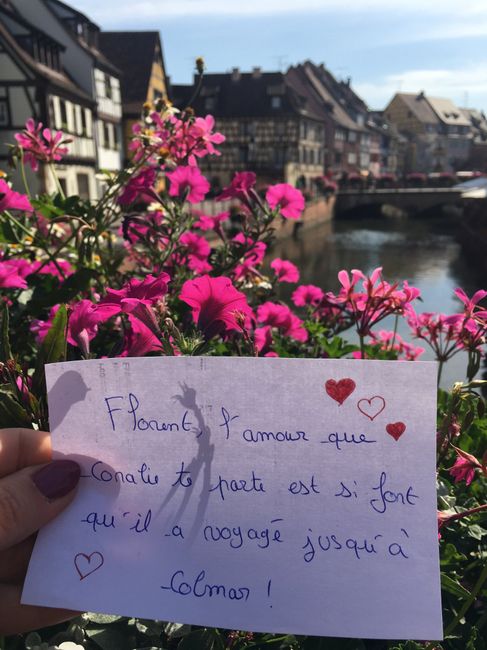 Florent, l'amour que
Coralie te porte est si fort
qu'il a voyagé jusqu'à
Colmar !